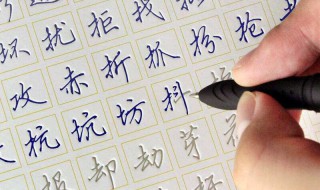 扰拒找
攻赤折抓扮抢
抗坑坊抖
报却劫芽